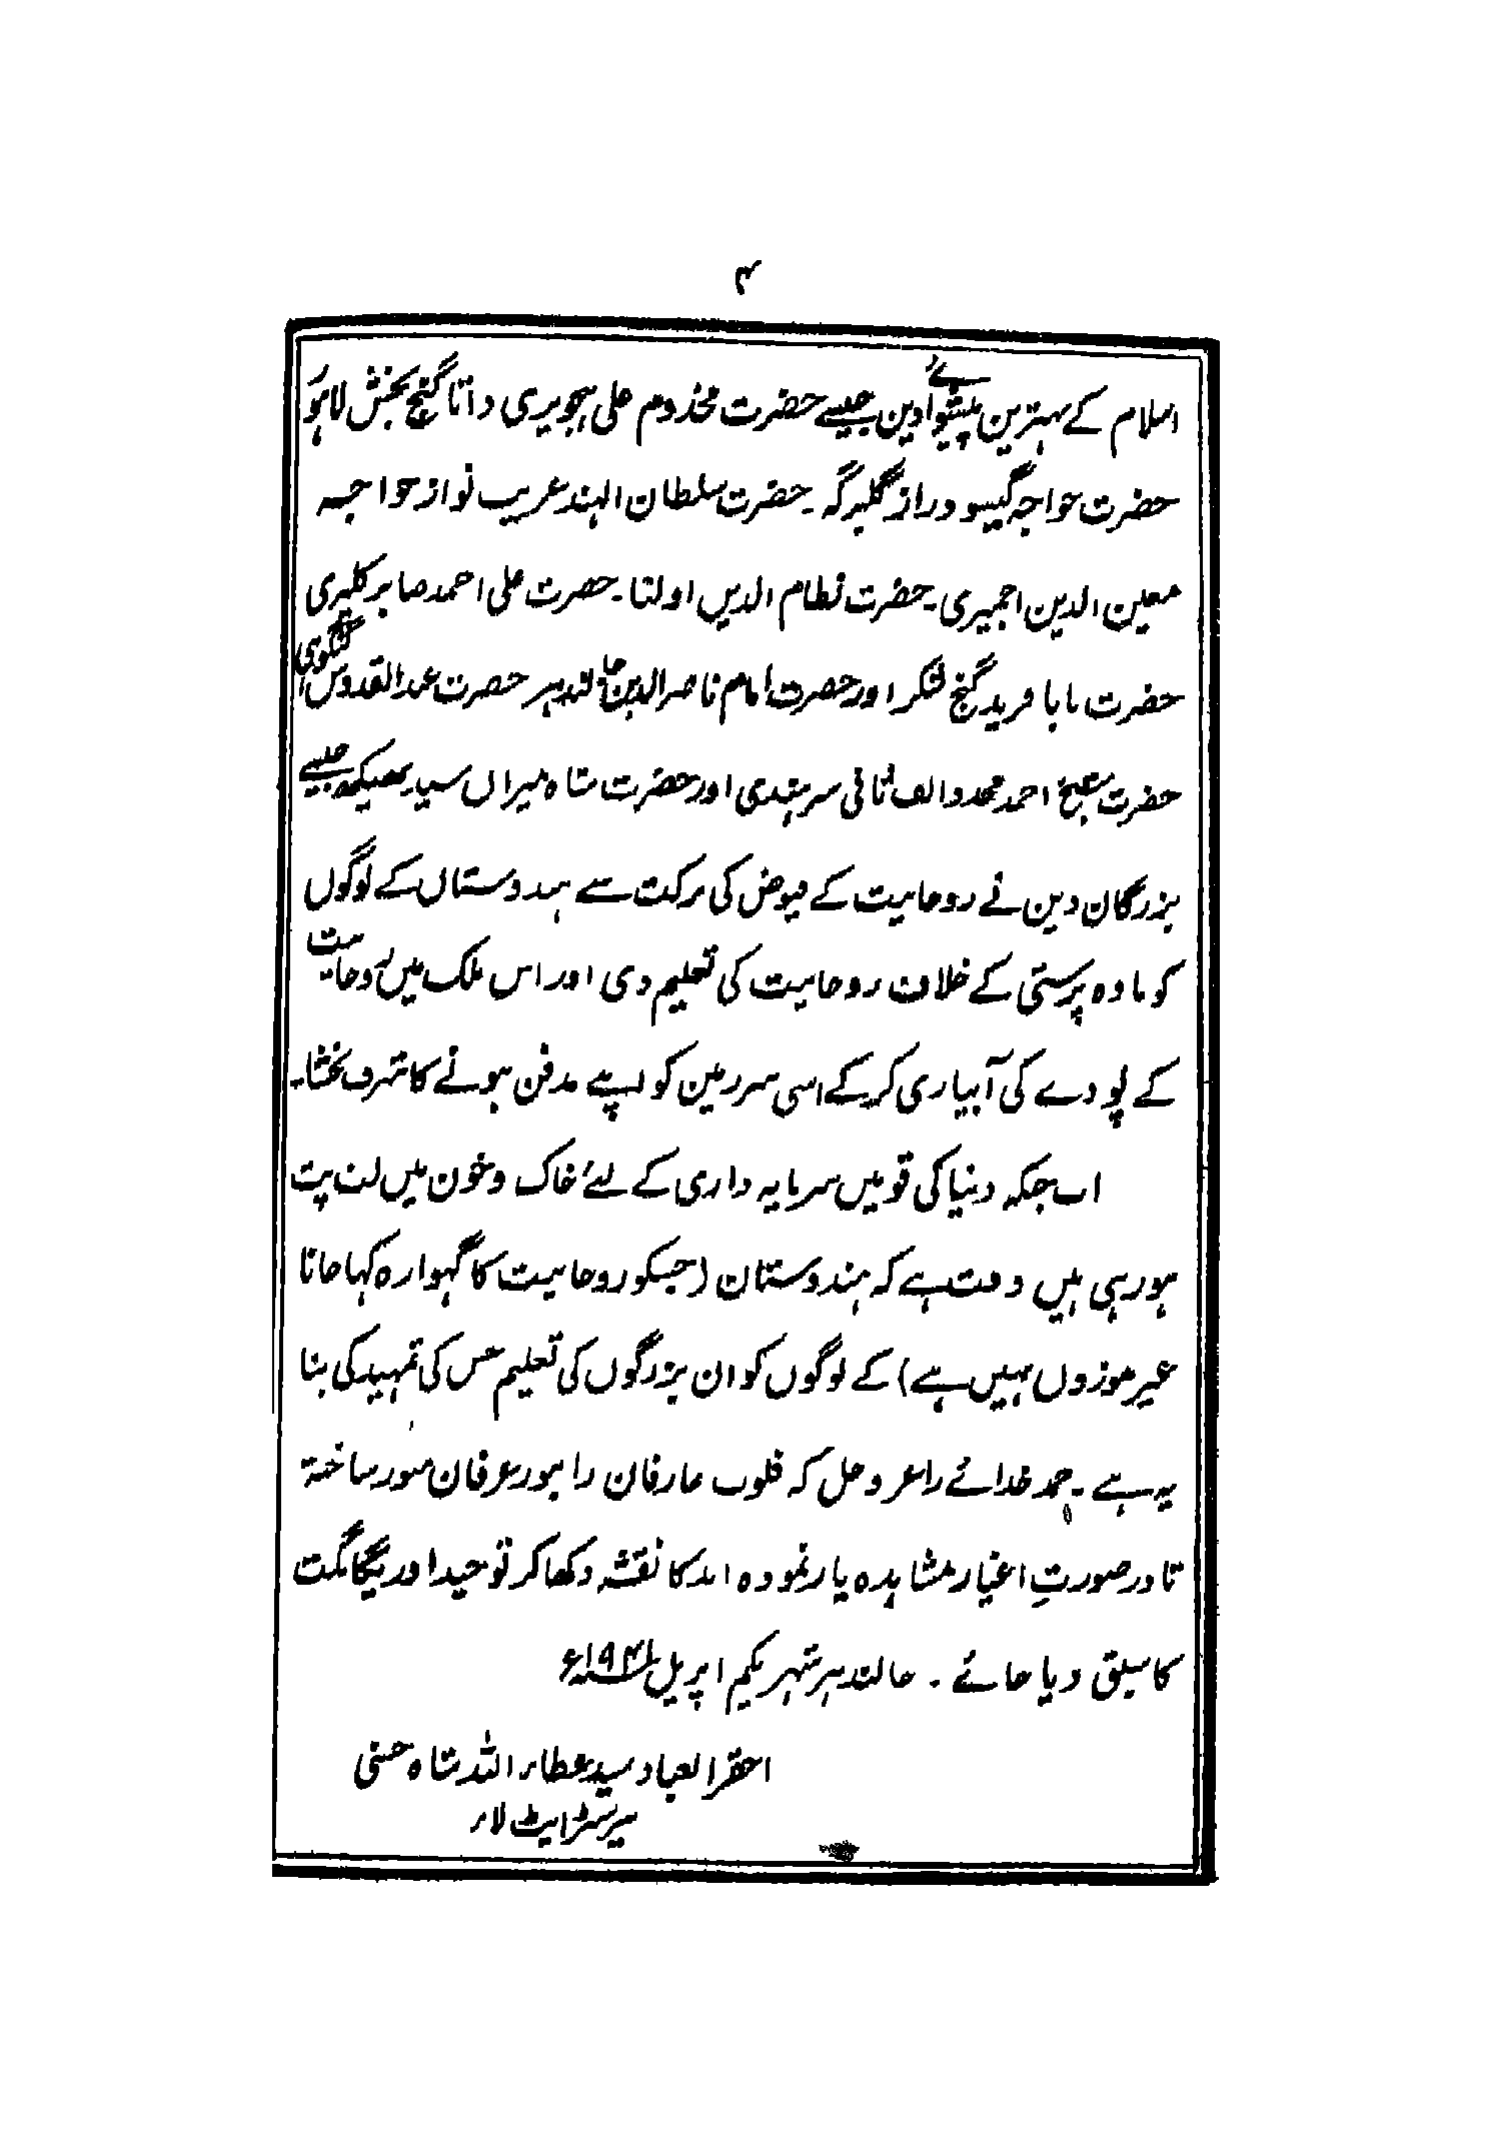 ۴
اسلام کے بہترین پیشوائے دین جیسے حضرت مخدوم علی ہجویری داتا گنج بخش لاہور
حضرت خواجہ گیسو دراز گلبرگہ ۔ حضرت سلطان الہند غریب نواز خواجہ
معین الدین اجمیری۔ حضرت نظام الدین اولیا۔ حضرت علی احمد صابر کلیری
حضرت بابا فرید گنج شکر اور حضرت امام ناصر الدین جالندہر حضرت عبدالقدوس گنگوہی
حضرت شیخ احمد مجدد الف ثانی سرہندی اور حضرت شاہ میراں سید بھیکھ جیسے
بزرگان دین نے روحانیت کے فیوض کی برکت سے ہندوستان کے لوگوں
کو مادہ پرستی کے خلاف روحانیت کی تعلیم دی اور اس ملک میں روحانیت
کے پودے کی آبیاری کر کے اسی سرزمین کو اپنے مدفن ہونے کا شرف بخشا۔
اب جبکہ دنیا کی قومیں سرمایہ داری کے لئے خاک و خون میں لت پت
ہو رہی ہیں وقت ہے کہ ہندوستان (جسکو روحانیت کا گہوارہ کہا جانا
غیر موزوں نہیں ہے) کے لوگوں کو ان بزرگوں کی تعلیم جس کی تمہید کی بنا
یہ ہے ۔ حمد خدائے را عز و جل کہ قلوب عارفان را بنور عرفان منور ساختہ
تا در صورتِ اغیار مشاہدہ یار نمودہ اند کا نقشہ دکھا کر توحید اور یگانگت
کا سبق دیا جائے ۔ جالندہر شہر یکم اپریل ۱۹۴۱ء
احقر العباد سید عطاء اللہ شاہ حسنی
بیرسٹر ایٹ لاء